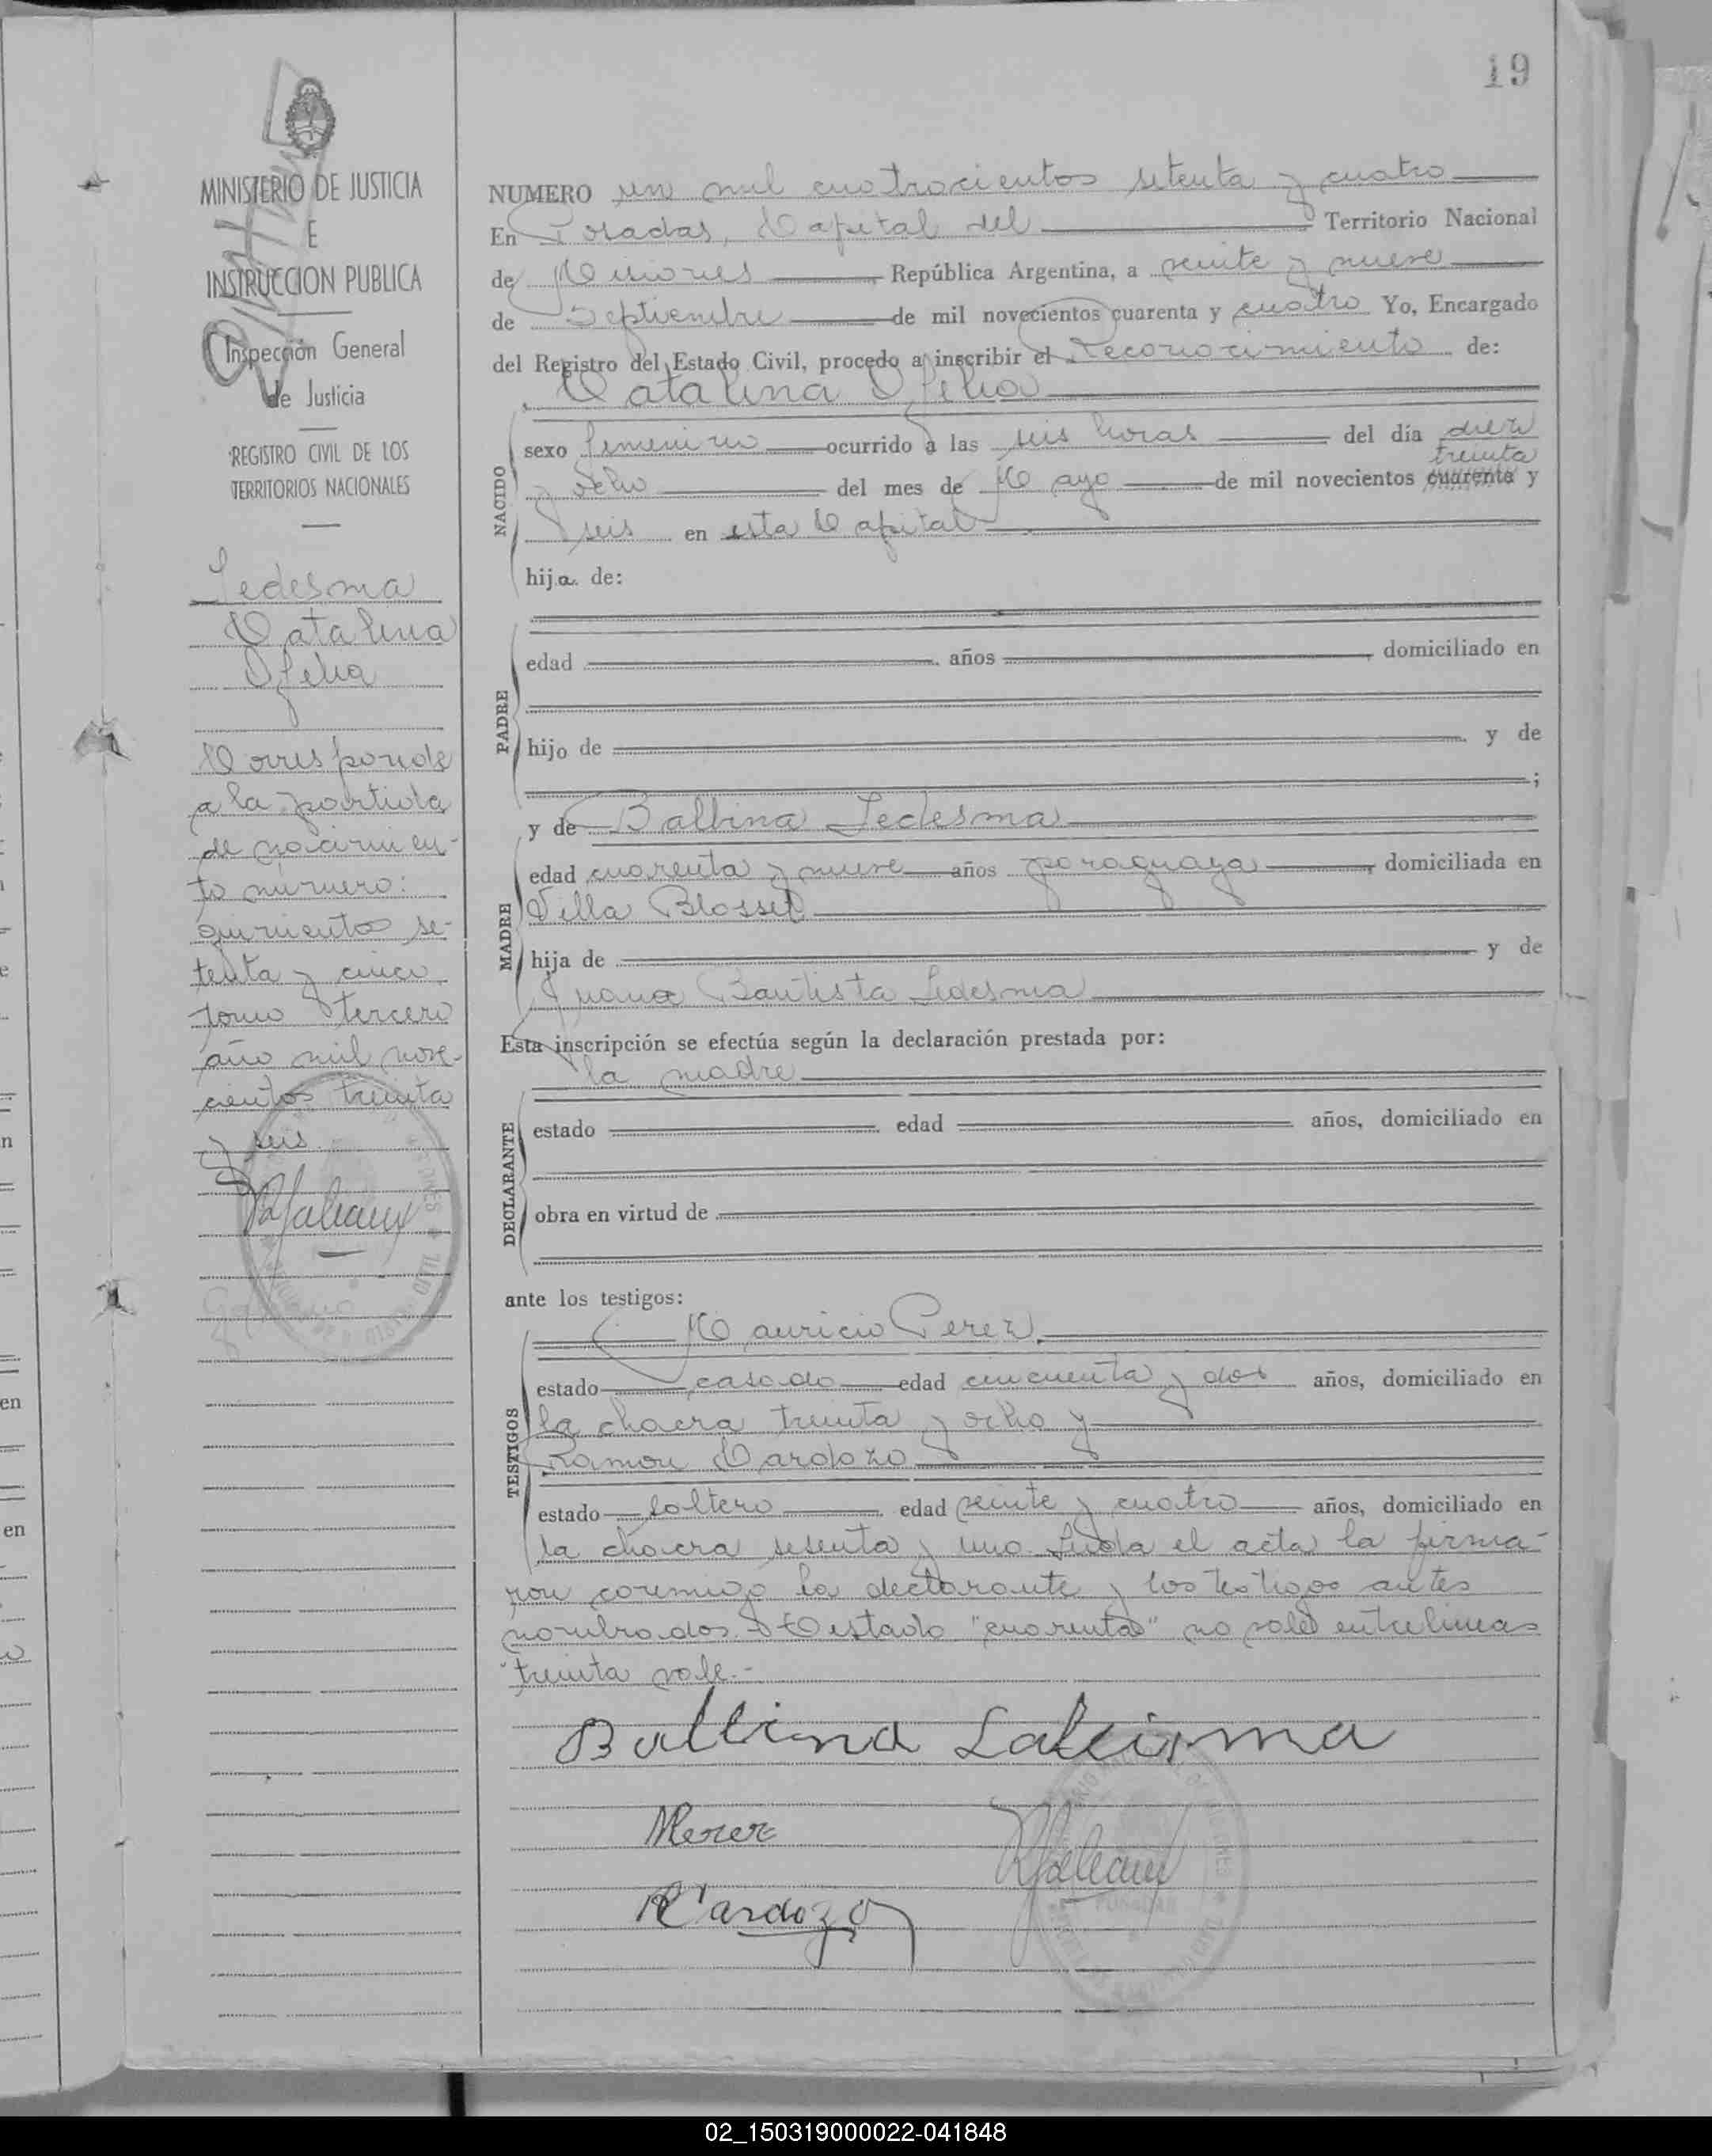 19
MINISTERIO DE JUSTICIA
E
INSTRUCCION PUBLICA
Inspección General
de Justicia
REGISTRO CIVIL DE LOS
TERRITORIOS NACIONALES
Ledesma
Catalina
Ofelia
Corresponde
a la partida
de nacimien-
to número:
quinientos se-
tenta y cinco
tomo tercero
año mil nove-
cientos treinta
y seis
NUMERO un mil cuatrocientos setenta y cuatro
En Posadas, Capital del Territorio Nacional
de Misiones República Argentina, a veinte y nueve
de Septiembre de mil novecientos cuarenta y cuatro Yo, Encargado
del Registro del Estado Civil, procedo a inscribir el Reconocimiento de:
Catalina Ofelia
NACIDO
sexo femenino ocurrido a las seis horas del día diez
treinta
y ocho del mes de Mayo de mil novecientos cuarenta y
seis en esta Capital
hija de:
PADRE
edad años domiciliado en
hijo de y de
;
y de Balbina Ledesma
MADRE
edad cuarenta y nueve años paraguaya, domiciliada en
Villa Blosset
hija de y de
Juana Bautista Ledesma
Esta inscripción se efectúa según la declaración prestada por:
la madre
DECLARANTE
estado edad años, domiciliado en
obra en virtud de
ante los testigos:
Mauricio Perez
TESTIGOS
estado casado edad cincuenta y dos años, domiciliado en
la chacra treinta y ocho y
Ramon Cardozo
estado soltero edad veinte y cuatro años, domiciliado en
la chacra sesenta y uno. Leída el acta la firma-
ron conmigo la declarante y los testigos antes
nombrados. Testado "cuarenta" no vale entrelineas
"treinta vale.-
Balbina Ledeisma
MPerez
RCardozo
02_150319000022-041848